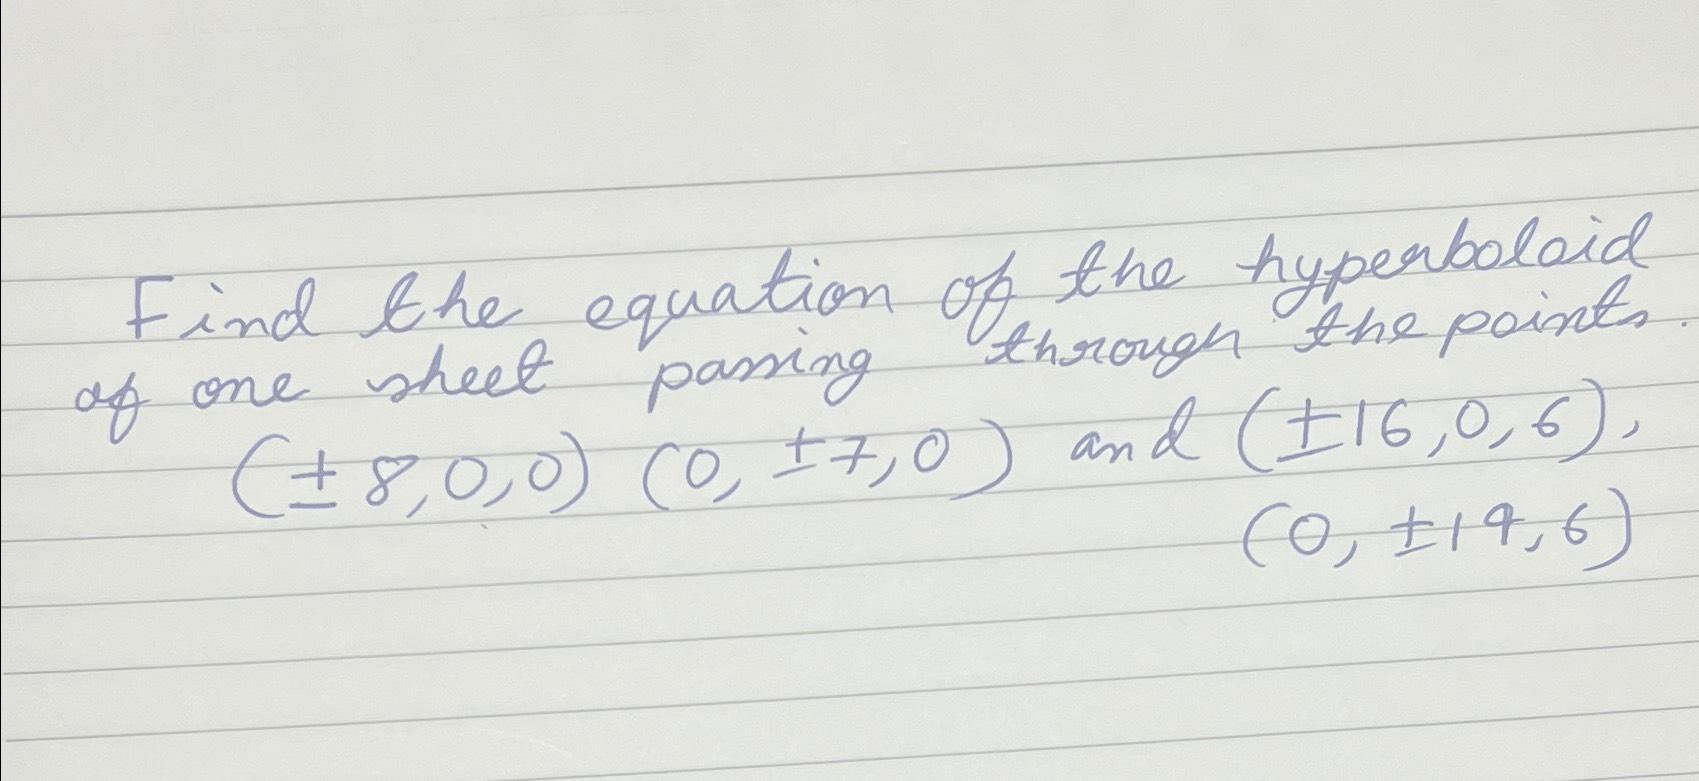 Find the equation of the hyperboloid
of one sheet passing through the points.
(±8,0,0) (0, ±7,0) and (±16,0,6),
(0, ±19,6)